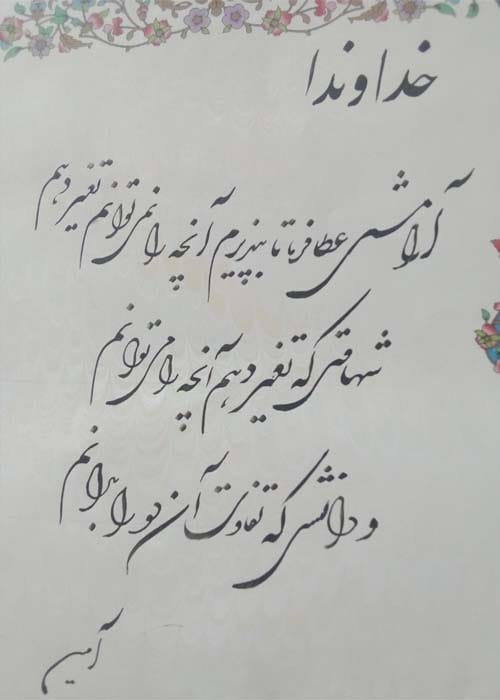 خداوندا
آرامشی عطا فرما تا بپذیرم آنچه را نمی توانم تغییر دهم
شهامتی که تغییر دهم آنچه را می توانم
و دانشی که تفاوت آن دو را بدانم
آمین